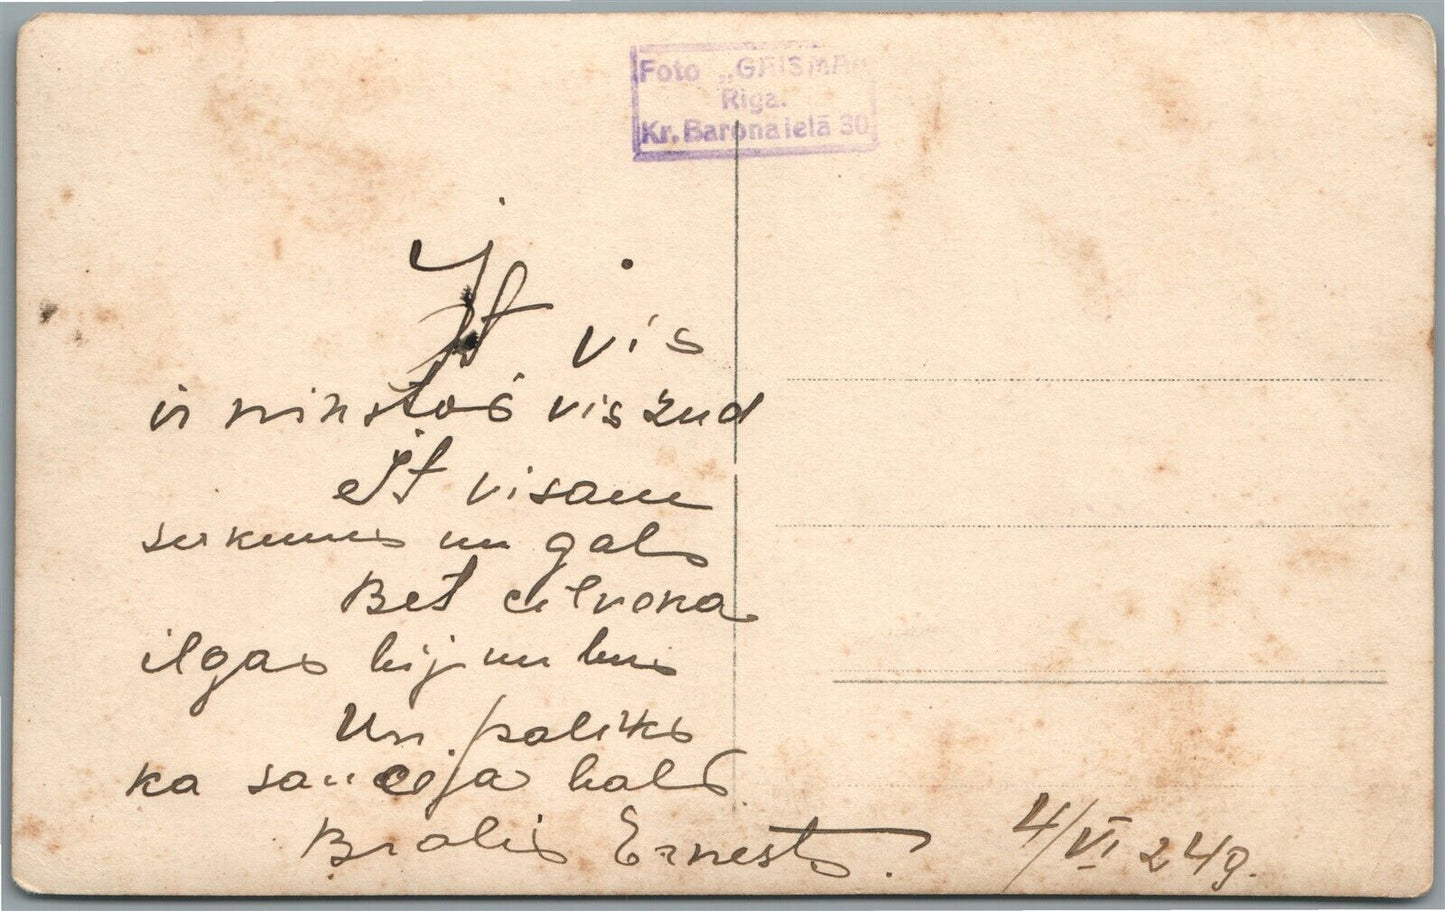 Foto „GAISMA“
Riga.
Kr. Barona ielā 30
It vis
ir mikstos vis zud
It visam
serkums un gals
Bet cilveka
ilgas bij un bus
Un paliks
ka sauceja bals
Bralis Ernests.
4/VI 24g.